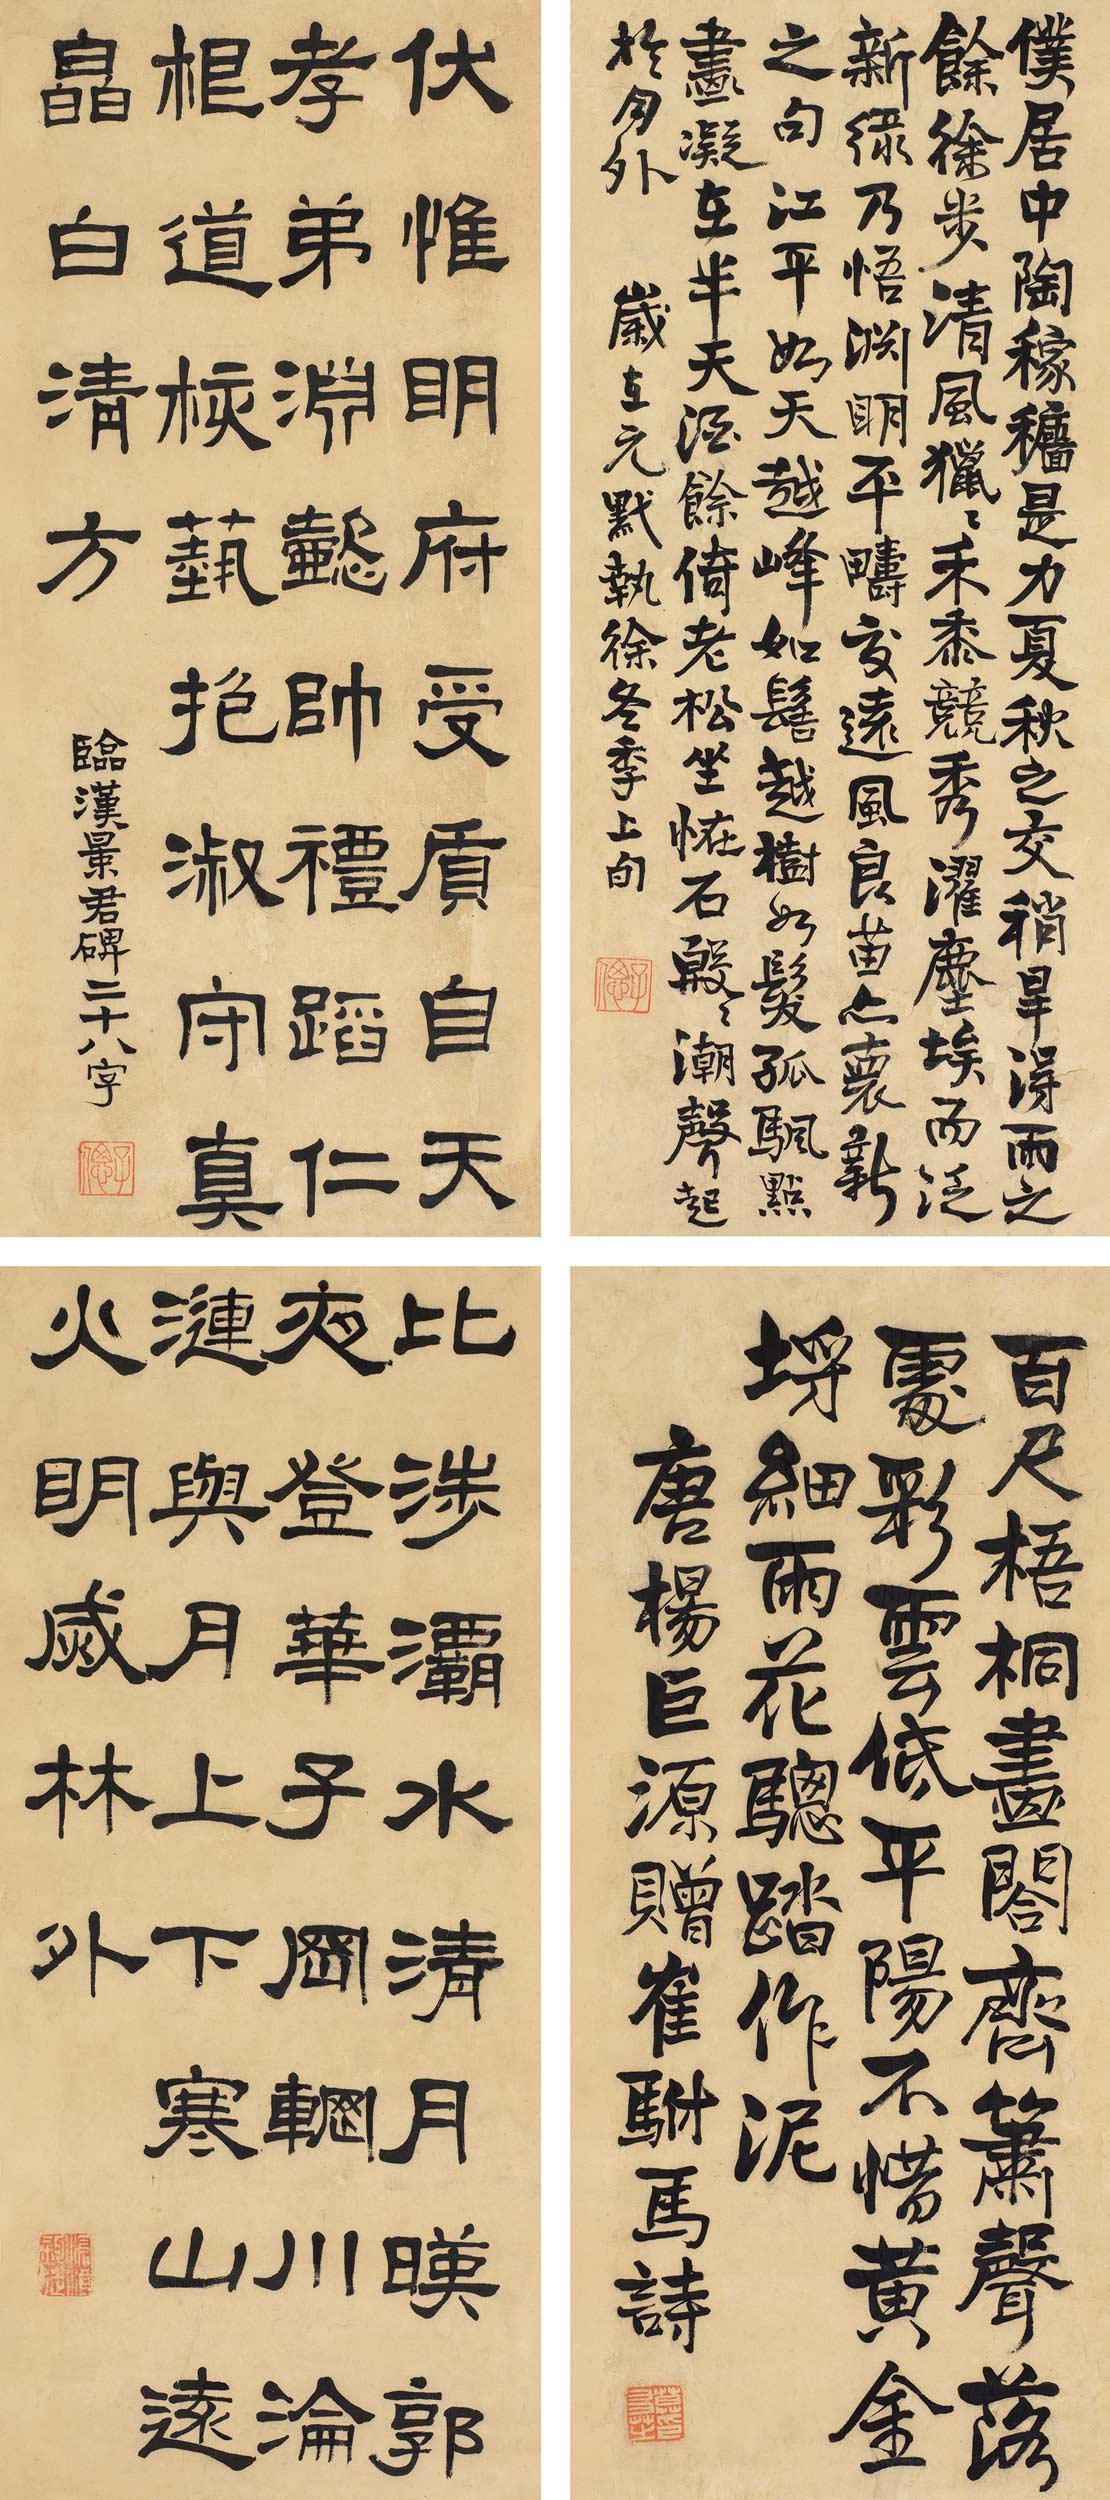 僕居中陶稼穡是力夏秋之交稍旱得雨之
餘徐步清風獵〻禾黍競秀濯塵埃而泛
新綠乃悟淵明平疇交遠風良苗亦褱新
之句江平如天越峰如髻越樹如髮孤颿點
畫凝在半天酒餘倚老松坐恠石殷〻潮聲起
於月外 歲在元黓執徐冬季上旬
伏惟明府受質自天
孝弟淵懿帥禮蹈仁
根道核藝抱淑守真
皛白清方
臨漢景君碑二十八字
百尺梧桐畫閣齊簫聲落
處彩雲低平陽不惜黃金
埒細雨花驄踏作泥
唐楊巨源贈崔駙馬詩
比涉灞水清月暎郭
夜登華子岡輞川淪
漣與月上下寒山遠
火明滅林外